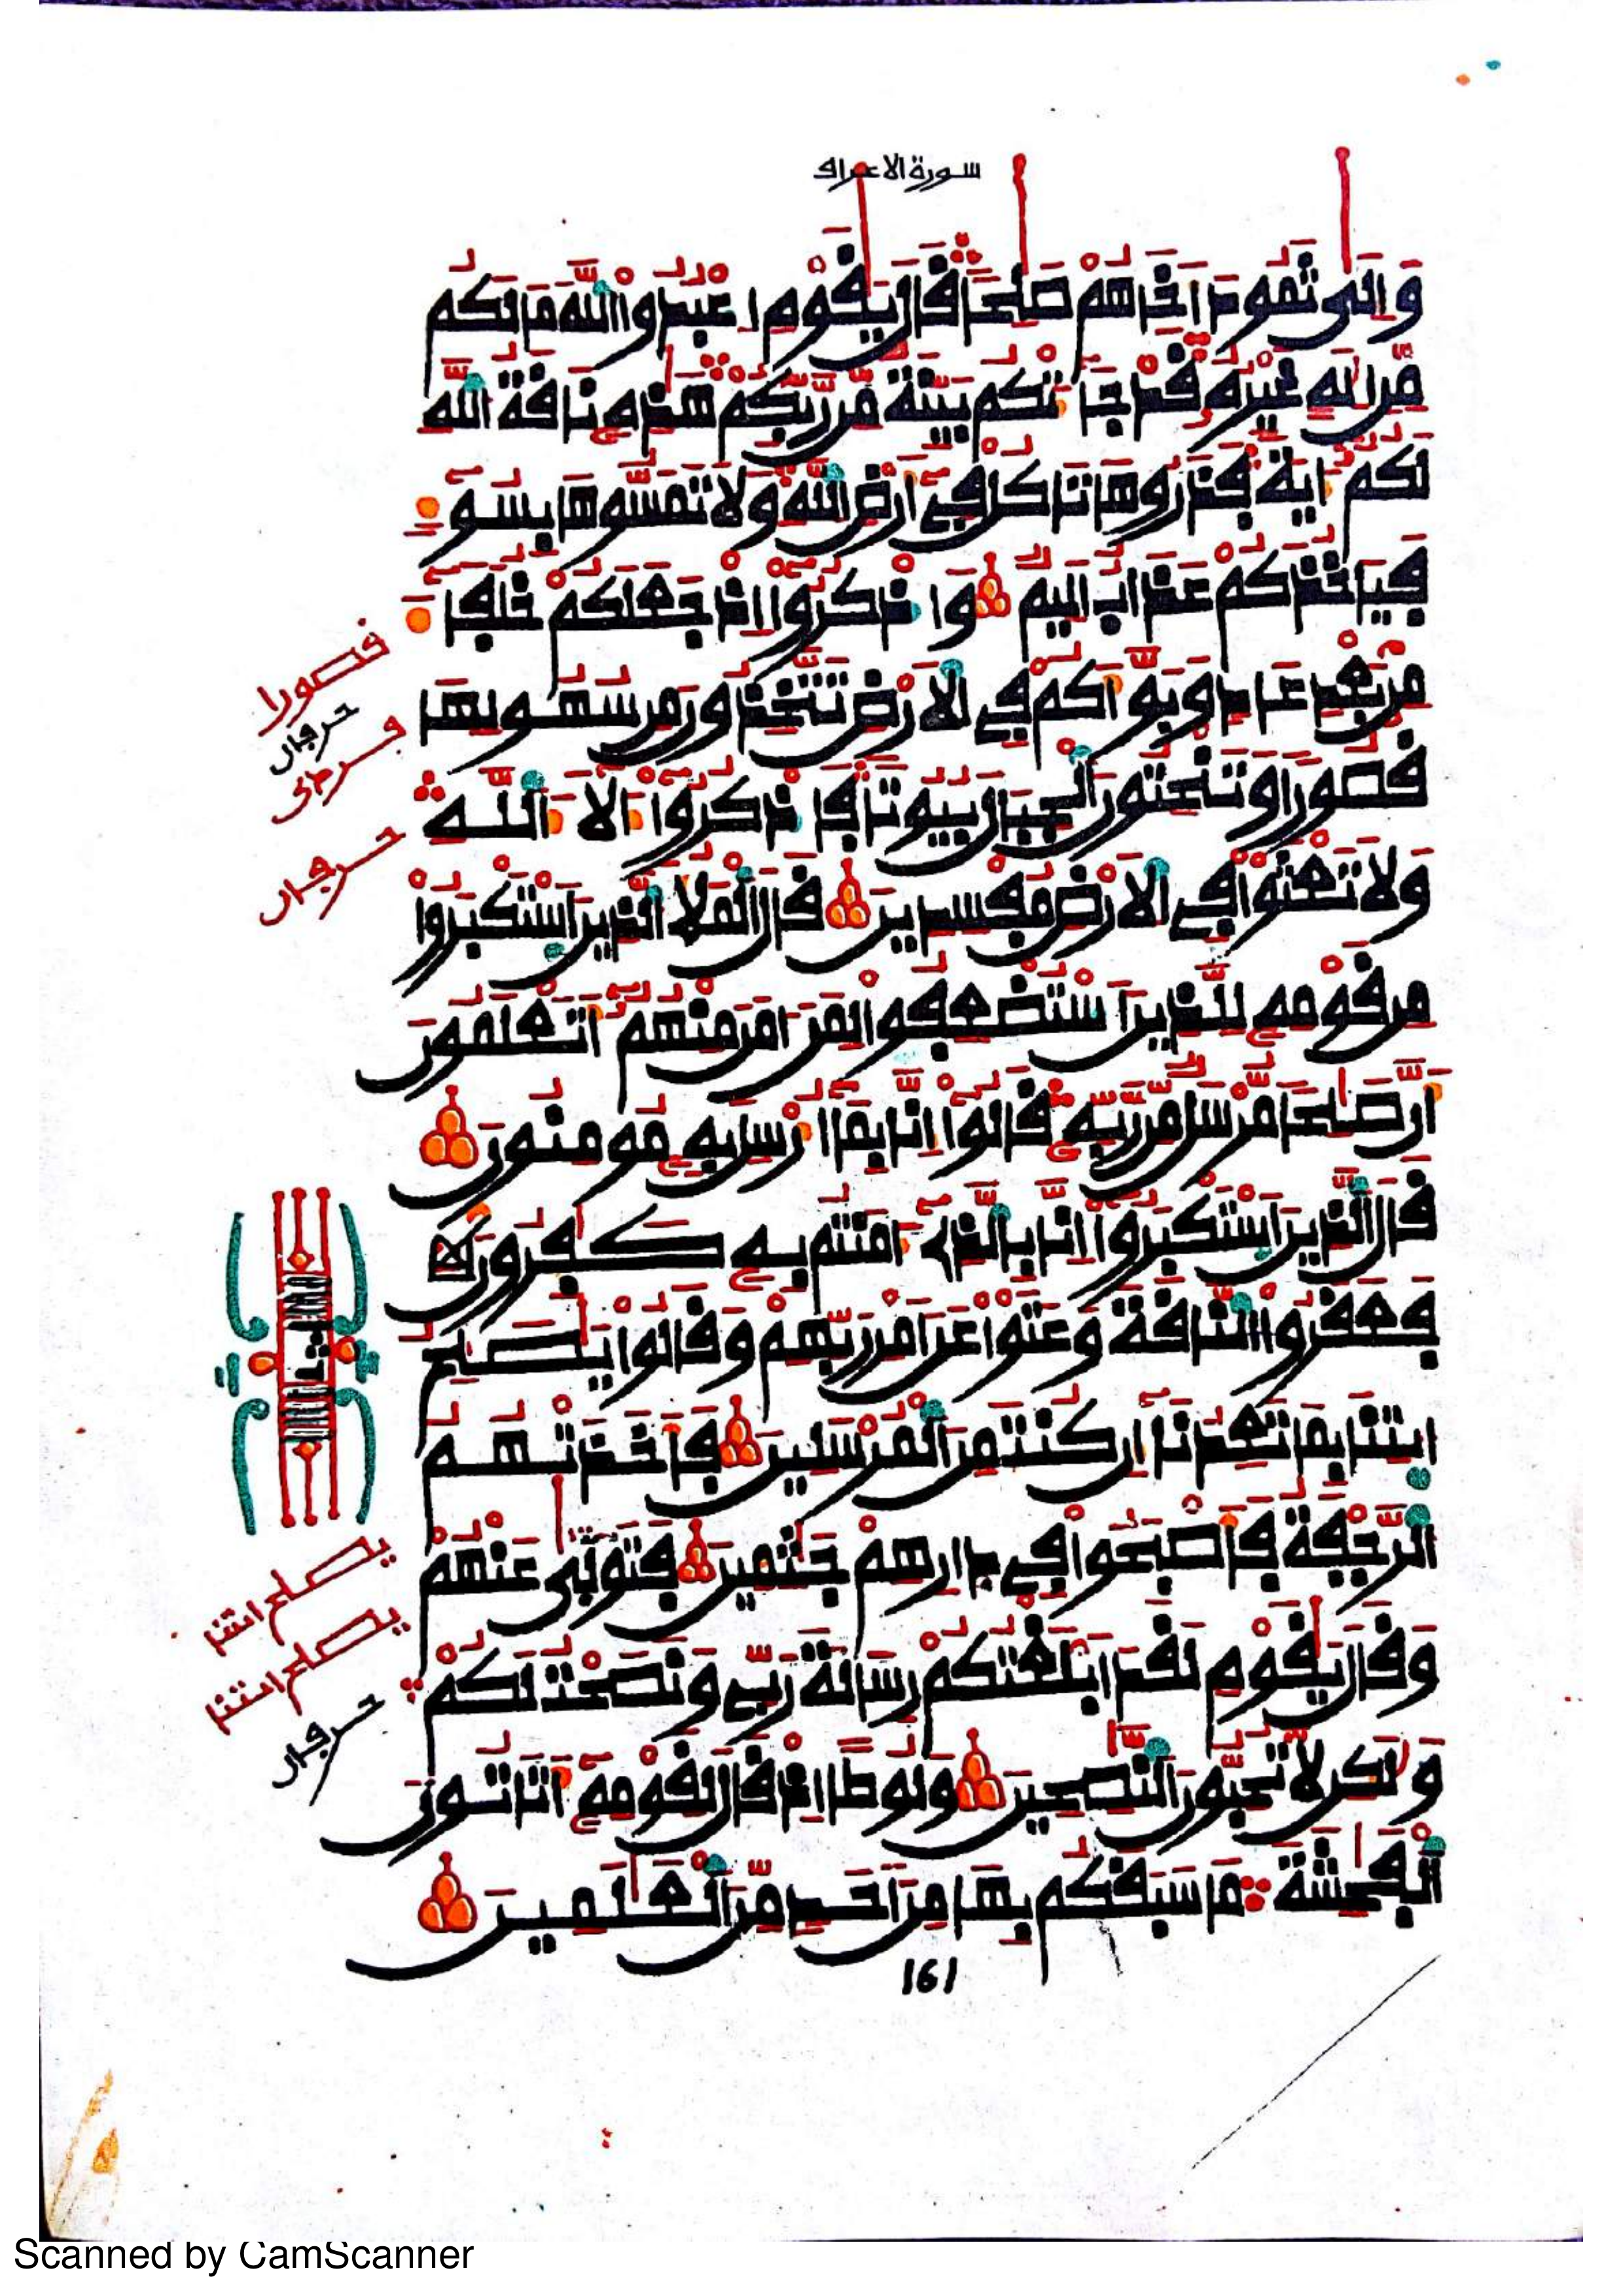 سورة الاعراف
وَإِلَىٰ ثَمُودَ أَخَاهُمْ صَٰلِحًا قَالَ يَٰقَوْمِ اعْبُدُوا اللَّهَ مَا لَكُم
مِّنْ إِلَٰهٍ غَيْرُهُ قَدْ جَآءَتْكُم بَيِّنَةٌ مِّن رَّبِّكُمْ هَٰذِهِ نَاقَةُ اللَّهِ
لَكُمْ ءَايَةً فَذَرُوهَا تَأْكُلْ فِي أَرْضِ اللَّهِ وَلَا تَمَسُّوهَا بِسُوٓءٍ
فَيَأْخُذَكُمْ عَذَابٌ أَلِيمٌ وَاذْكُرُوا إِذْ جَعَلَكُمْ خُلَفَآءَ
مِنْ بَعْدِ عَادٍ وَبَوَّأَكُمْ فِي الْأَرْضِ تَتَّخِذُونَ مِن سُهُولِهَا
قُصُورًا وَتَنْحِتُونَ الْجِبَالَ بُيُوتًا فَاذْكُرُوا ءَالَآءَ اللَّهِ
وَلَا تَعْثَوْا فِي الْأَرْضِ مُفْسِدِينَ قَالَ الْمَلَأُ الَّذِينَ اسْتَكْبَرُوا
مِن قَوْمِهِ لِلَّذِينَ اسْتُضْعِفُوا لِمَنْ ءَامَنَ مِنْهُمْ أَتَعْلَمُونَ
أَنَّ صَٰلِحًا مُّرْسَلٌ مِّن رَّبِّهِ قَالُوا إِنَّا بِمَا أُرْسِلَ بِهِ مُومِنُونَ
قَالَ الَّذِينَ اسْتَكْبَرُوا إِنَّا بِالَّذِي ءَامَنتُم بِهِ كَٰفِرُونَ
فَعَقَرُوا النَّاقَةَ وَعَتَوْا عَنْ أَمْرِ رَبِّهِمْ وَقَالُوا يَٰصَٰلِحُ
ايتِنَا بِمَا تَعِدُنَا إِن كُنتَ مِنَ الْمُرْسَلِينَ فَأَخَذَتْهُمُ
الرَّجْفَةُ فَأَصْبَحُوا فِي دَارِهِمْ جَٰثِمِينَ فَتَوَلَّىٰ عَنْهُمْ
وَقَالَ يَٰقَوْمِ لَقَدْ أَبْلَغْتُكُمْ رِسَالَةَ رَبِّي وَنَصَحْتُ لَكُمْ
وَلَٰكِن لَّا تُحِبُّونَ النَّٰصِحِينَ وَلُوطًا إِذْ قَالَ لِقَوْمِهِ أَتَاتُونَ
الْفَٰحِشَةَ مَا سَبَقَكُم بِهَا مِنْ أَحَدٍ مِّنَ الْعَٰلَمِينَ
قصورا
ثمن
يصلح ايتنا
161
Scanned by CamScanner